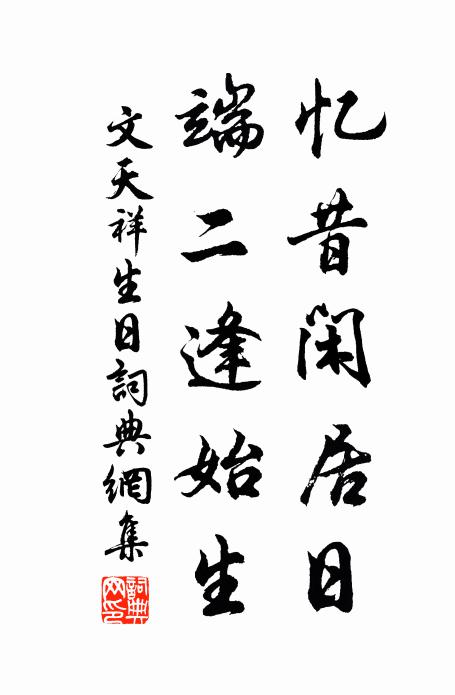 忆昔闲居日
端二逢始生
文天祥生日詞典網集
詞典網印